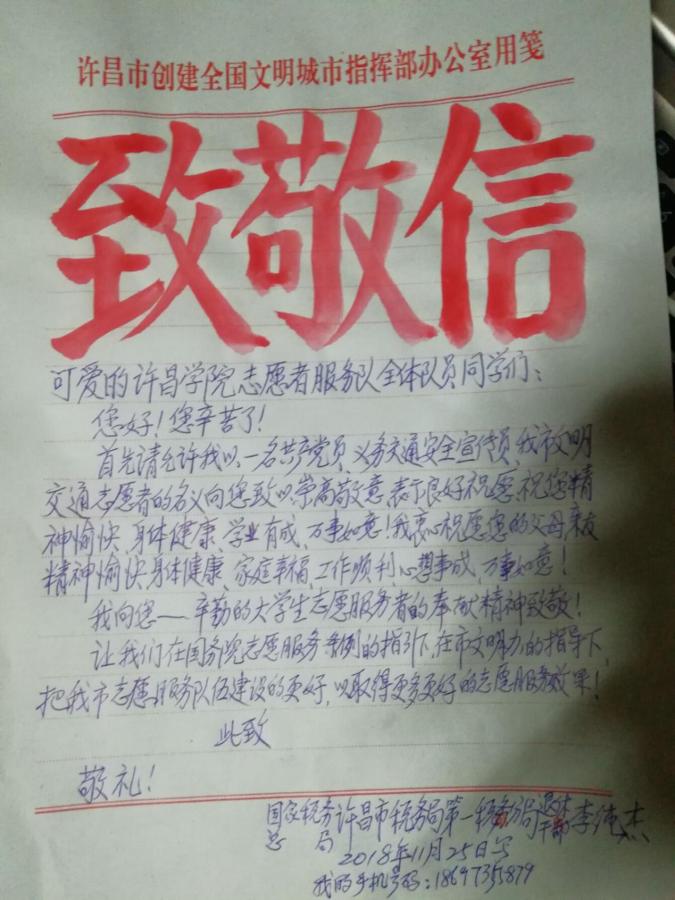 许昌市创建全国文明城市指挥部办公室用笺
致敬信
可爱的许昌学院志愿者服务队全体队员同学们：
您好！您辛苦了！
首先请允许我以一名共产党员、义务交通安全宣传员、我市文明
交通志愿者的名义向您致以崇高敬意、表示良好祝愿、祝您精
神愉快、身体健康、学业有成、万事如意！我衷心祝愿您的父母亲友
精神愉快、身体健康、家庭幸福、工作顺利、心想事成、万事如意！
我向您——辛勤的大学生志愿服务者的奉献精神致敬！
让我们在国务院志愿服务条例的指引下、在市文明办的指导下、
把我市志愿服务队伍建设的更好，以取得更多更好的志愿服务效果！
此致
敬礼！
国家税务总局许昌市税务局第一税务分局退休干部李纯杰
2018年11月25日写
我的手机号码：18697355879